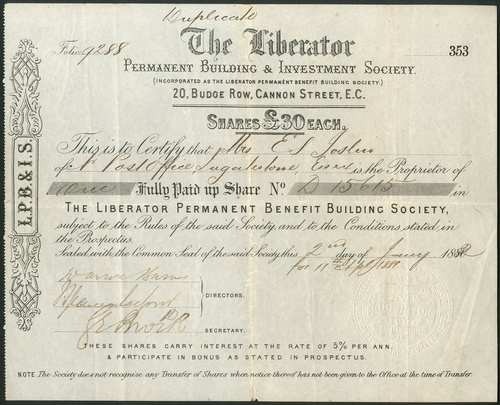 Duplicate
Folio 9288
The Liberator
353
PERMANENT BUILDING & INVESTMENT SOCIETY.
(INCORPORATED AS THE LIBERATOR PERMANENT BENEFIT BUILDING SOCIETY.)
20, BUDGE ROW, CANNON STREET, E.C.
SHARES £30 EACH.
This is to Certify that Mrs E. S. Joslin
of Post Office, Ingatestone, Essex is the Proprietor of
One Fully Paid up Share No. D 15615 in
THE LIBERATOR PERMANENT BENEFIT BUILDING SOCIETY,
subject to the Rules of the said Society, and to the Conditions stated in
the Prospectus.
Sealed with the Common Seal of the said Society this 2nd day of 188
for 11th Sept 1888
DIRECTORS.
SECRETARY.
THESE SHARES CARRY INTEREST AT THE RATE OF 5% PER ANN.
& PARTICIPATE IN BONUS AS STATED IN PROSPECTUS.
NOTE The Society does not recognise any Transfer of Shares when notice thereof has not been given to the Office at the time of Transfer.
L.P.B.& I.S.